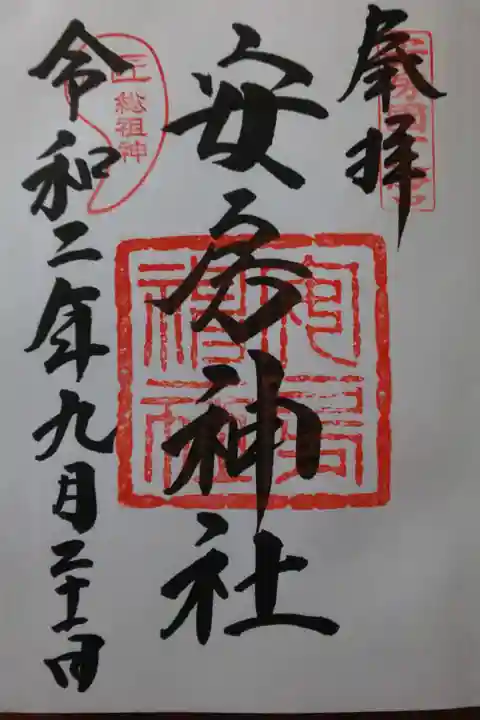 奉拝
安房國一之宮
安房神社
安房神社
令和二年九月二十一日
総祖神